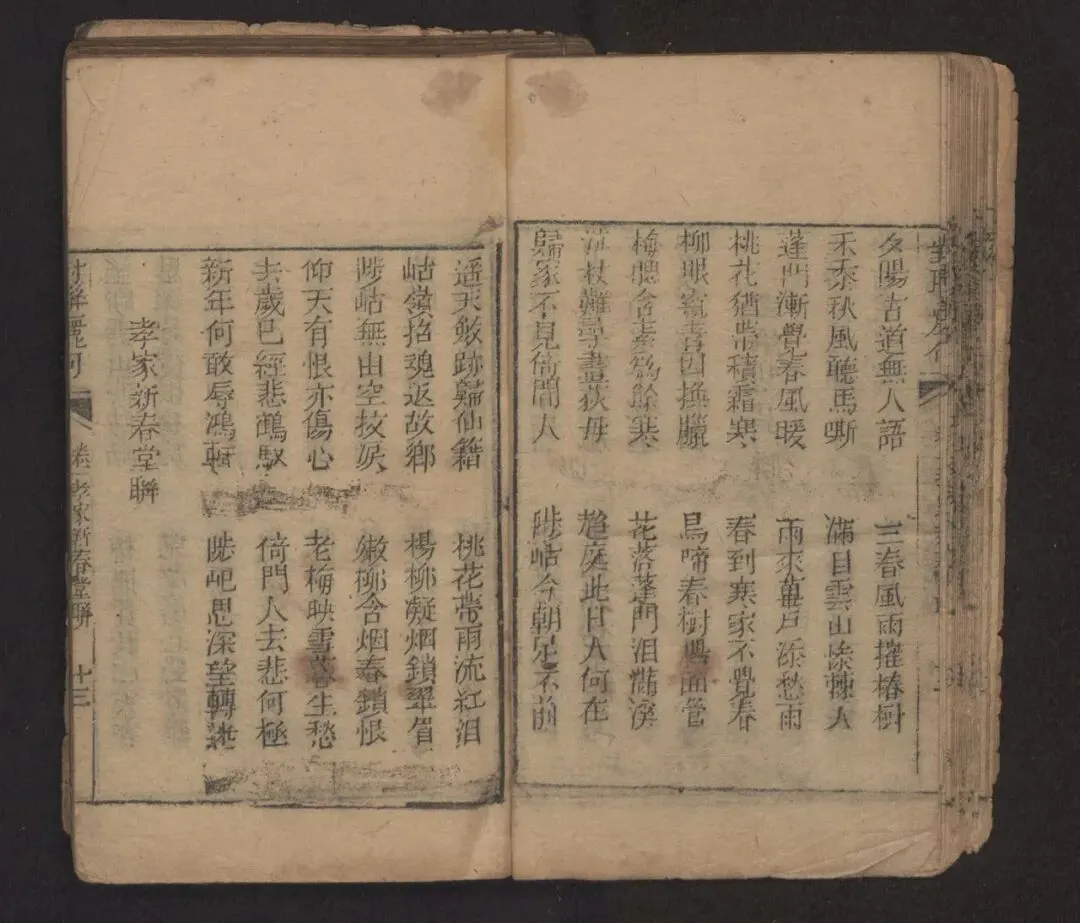 夕陽古道無人語 三春風雨摧椿樹
禾黍秋風聽馬嘶 滿目雲山慘棘人
蓬門漸覺春風暖 雨來蓽戶添愁雨
桃花猶帶積霜寒 春到寒家不覺春
柳眼 因換臘 鳥啼春樹
梅腮含素為餘寒 花落蓬門泪滿溪
泣杖難尋畫荻母 趨庭此日人何在
歸家不見倚閭人 陟岵今朝足不前
遥天斂跡歸仙籍 桃花帶雨流紅泪
岵嶺招魂返故鄉 楊柳凝烟鎖翠眉
陟岵無由空抆淚 嫩柳含烟春鎖恨
仰天有恨亦傷心 老梅映雪暮生愁
去歲已經悲鶴馭 倚門人去悲何極
新年何敢辱鴻軒 陟屺思深望轉迷
孝家新春堂聯
卷 孝家新春堂聯 十三